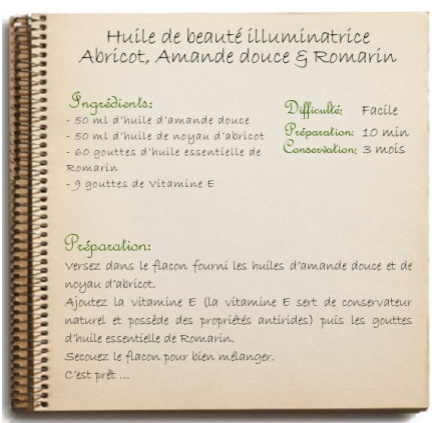 Huile de beauté illuminatrice
Abricot, Amande douce & Romarin
Ingrédients:
- 50 ml d'huile d'amande douce
- 50 ml d'huile de noyau d'abricot
- 60 gouttes d'huile essentielle de
Romarin
- 9 gouttes de Vitamine E
Difficulté: Facile
Préparation: 10 min
Conservation: 3 mois
Préparation:
Versez dans le flacon fourni les huiles d'amande douce et de
noyau d'abricot.
Ajoutez la vitamine E (la vitamine E sert de conservateur
naturel et possède des propriétés antirides) puis les gouttes
d'huile essentielle de Romarin.
Secouez le flacon pour bien mélanger.
C'est prêt ...